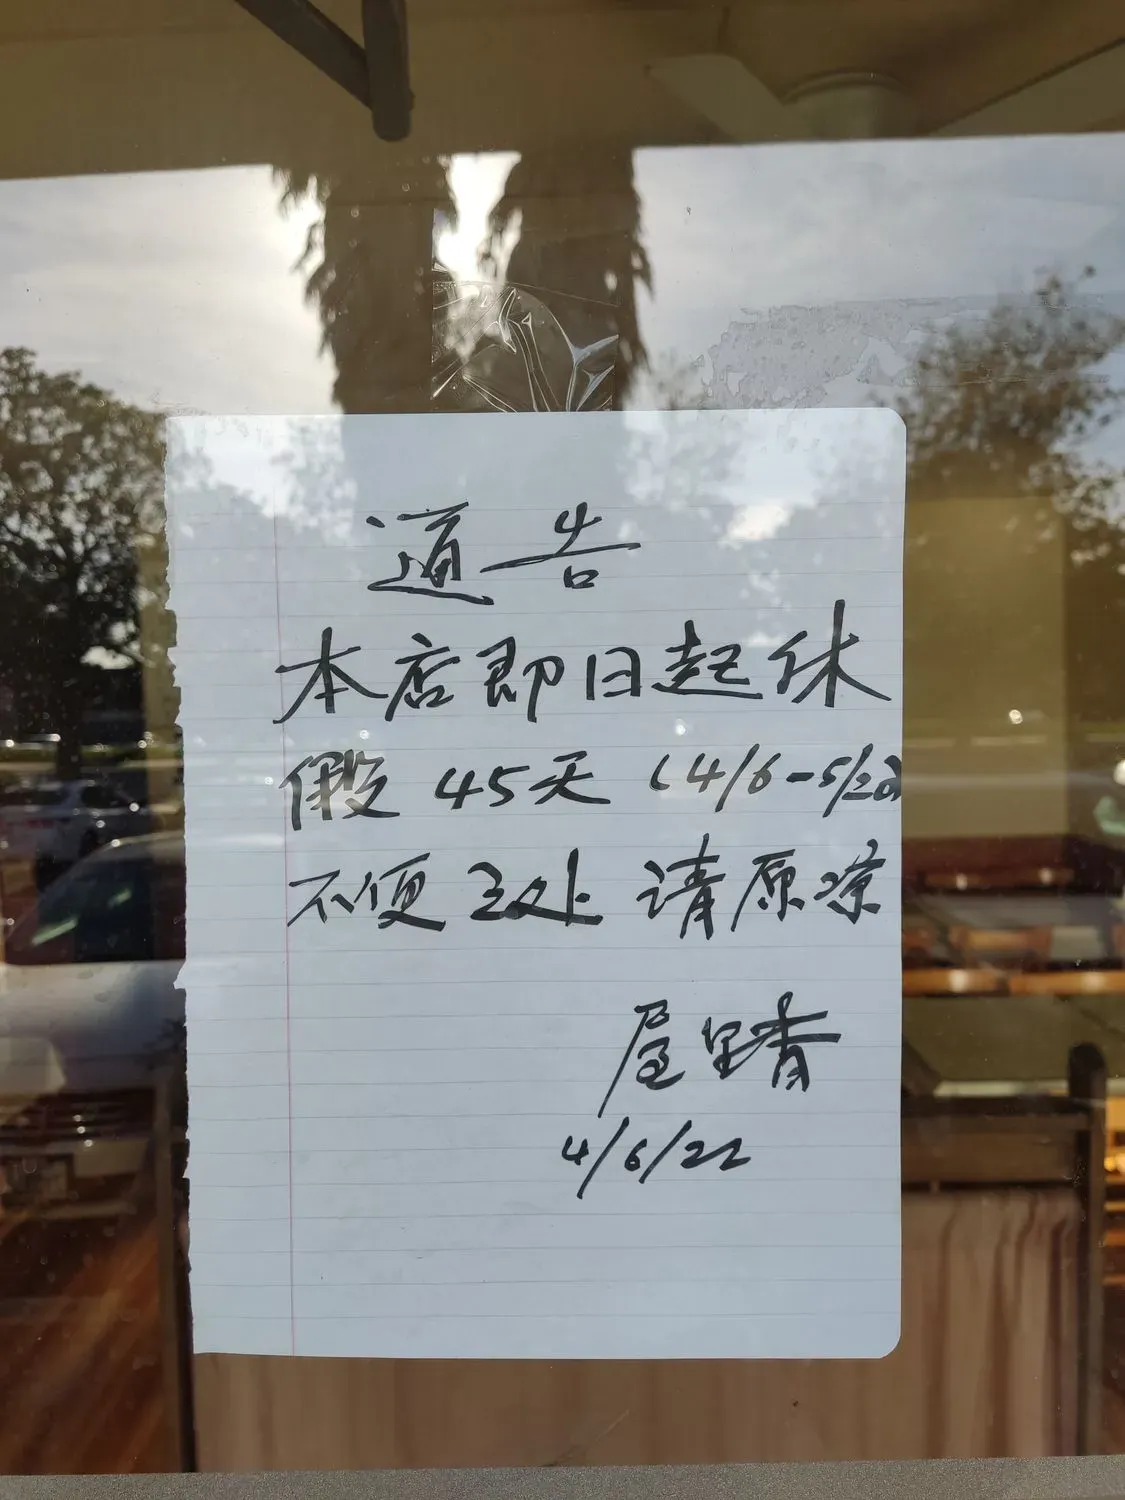 通告
本店即日起休
假 45天 (4/6-5/20
不便之处 请原谅
屋里香
4/6/22